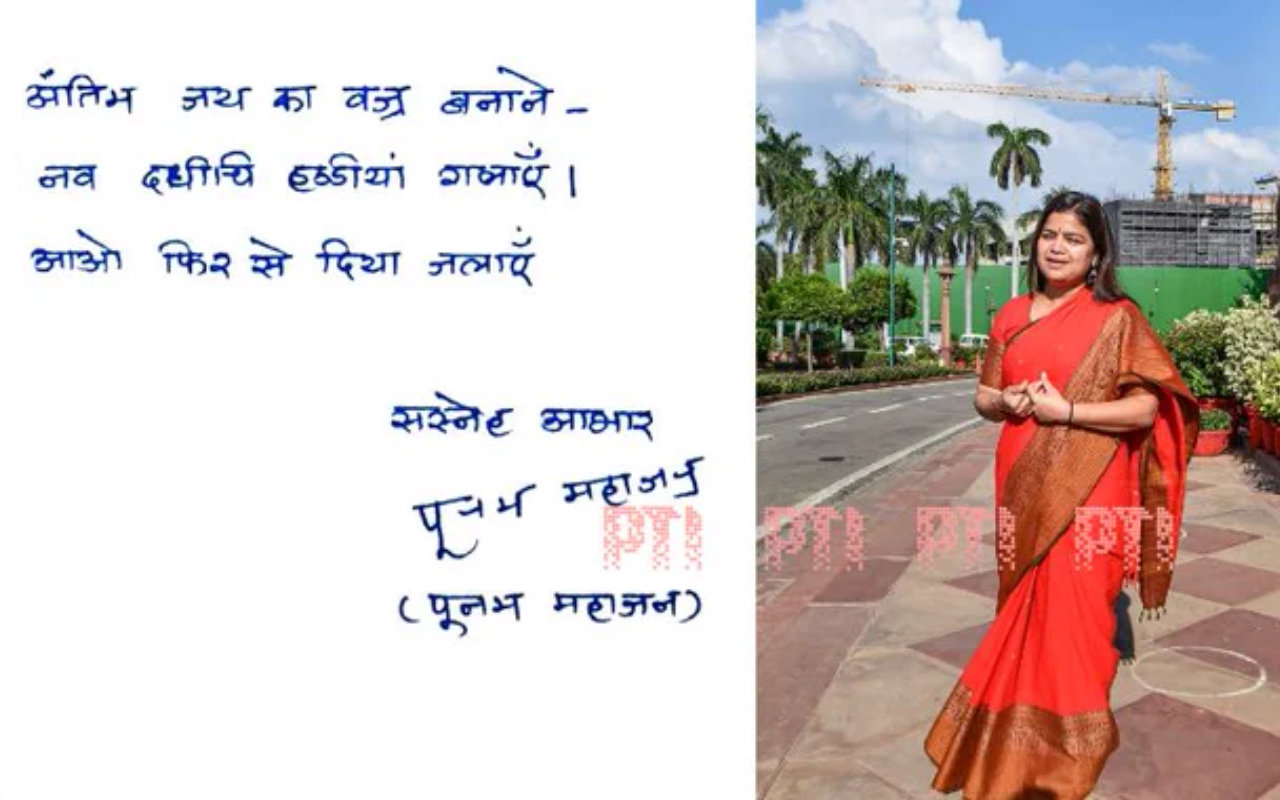 अंतिम जय का वज्र बनाने -
नव दधीचि हड्डीयां गलाएँ।
आओ फिर से दिया जलाएँ
सस्नेह आभार
पूनम महाजन
(पूनम महाजन)
PTI PTI PTI PTI